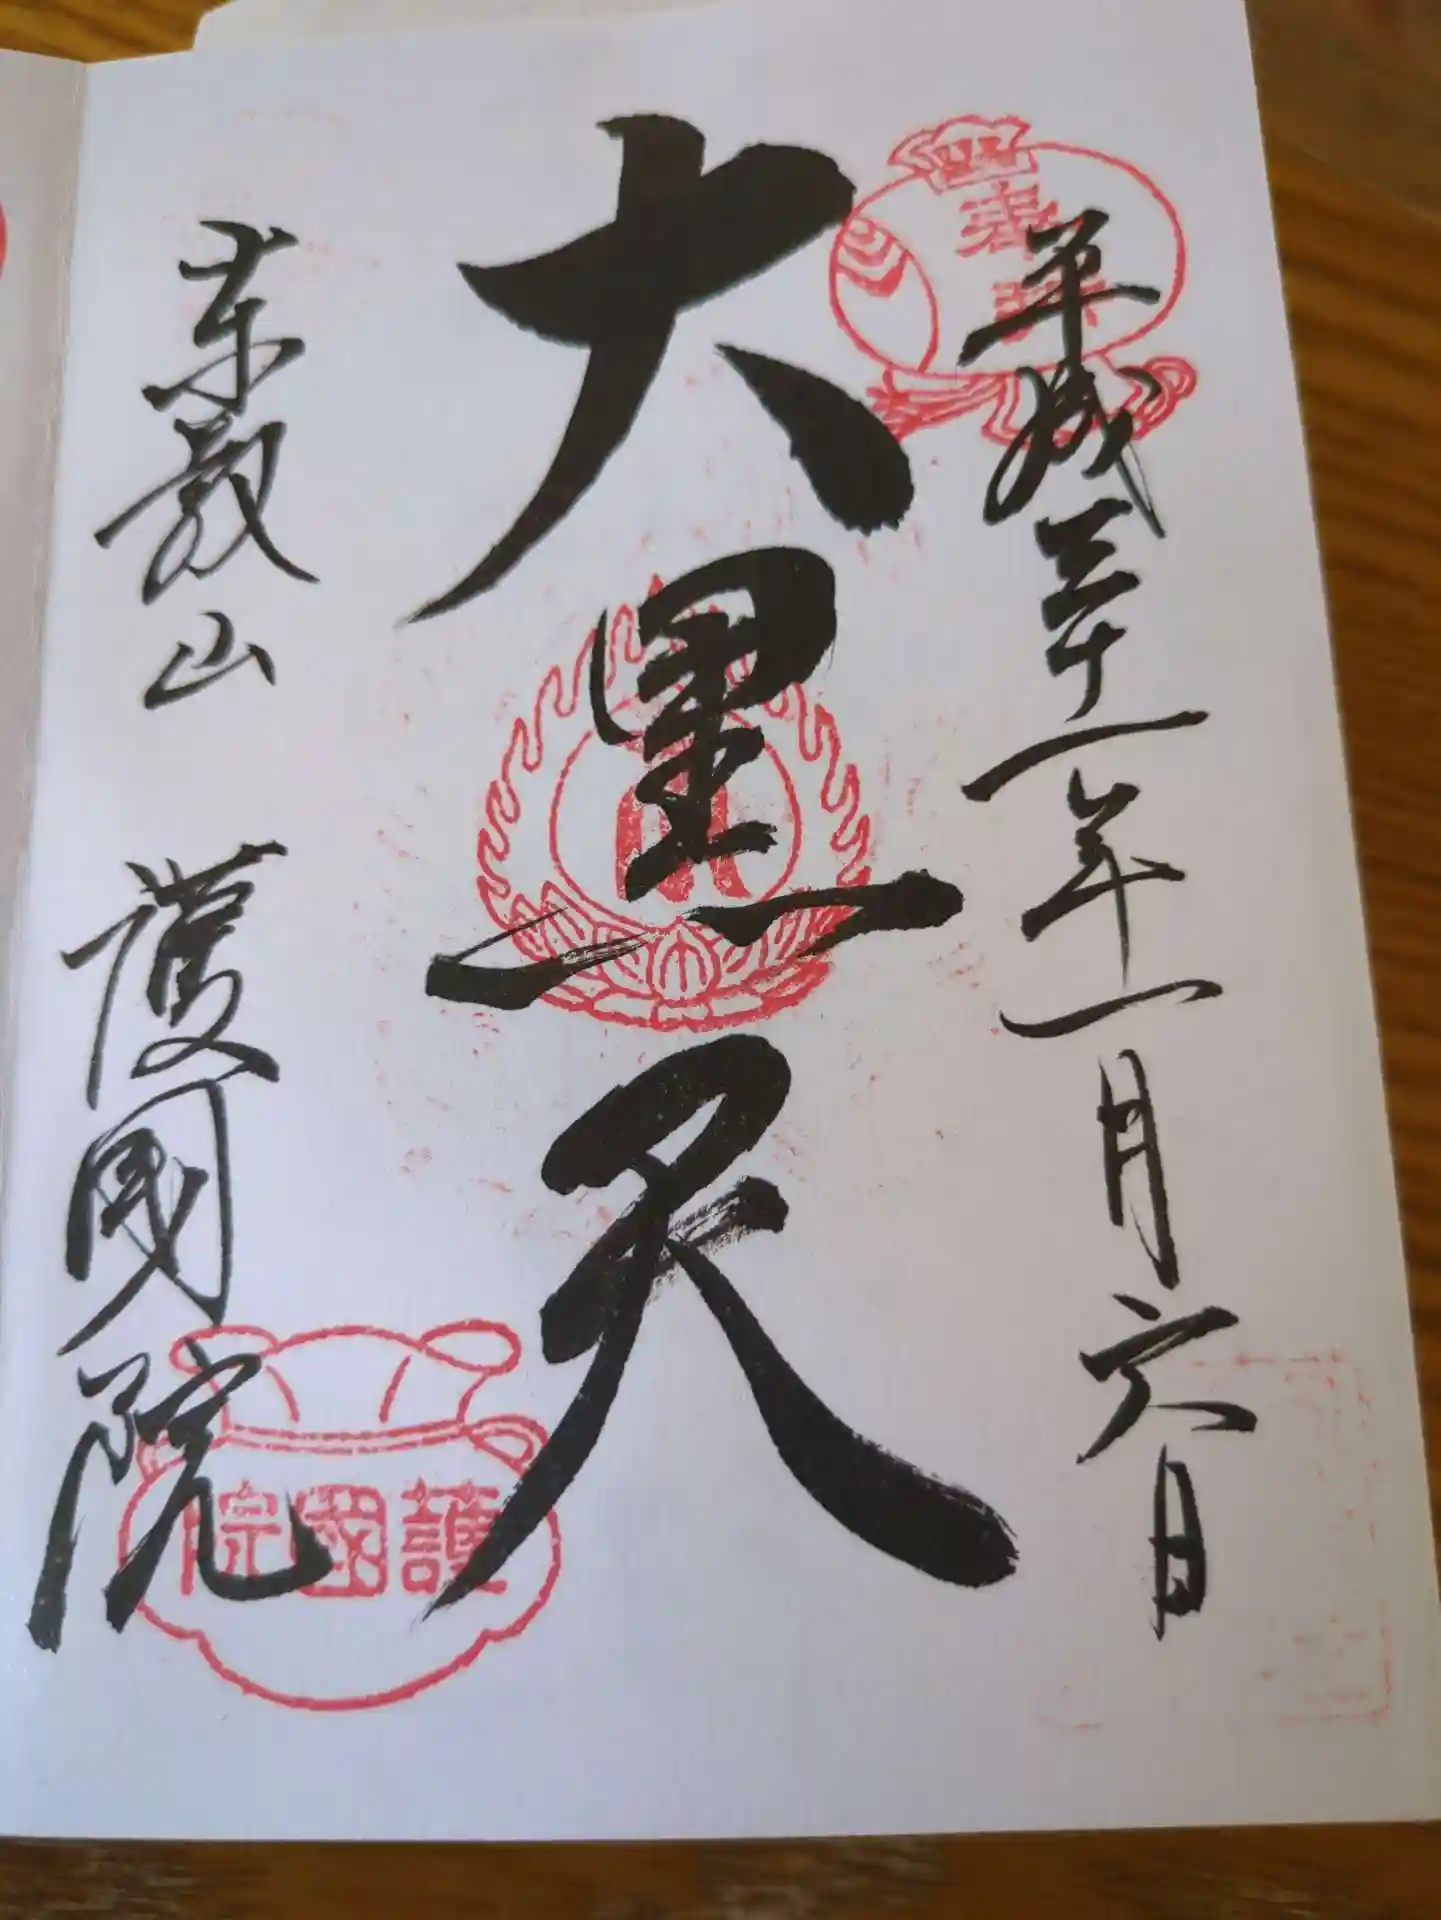 平成三十一年一月六日
大黒天
東叡山 護國院
奉拝
護國院